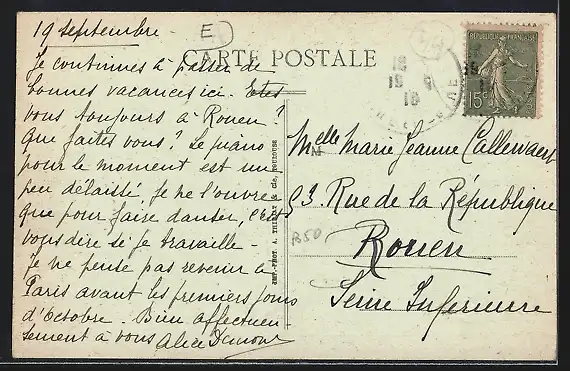 19 septembre -
E
CARTE POSTALE
REPUBLIQUE FRANÇAISE
15c
Je continue à passer de
bonnes vacances ici. Etes
vous toujours à Rouen ?
Que faites vous ? Le piano
pour le moment est un
peu délaissé, je ne l'ouvre
que pour faire danser, c'est
vous dire si je travaille -
Je ne pense pas revenir à
Paris avant les premiers jours
d'octobre. Bien affectueu
sement à vous Alice
IMP.-PHOT A. THIRIAT & Cie, TOULOUSE
Melle Marie Jeanne Callewaert
93 Rue de la République
Rouen
Seine Inférieure